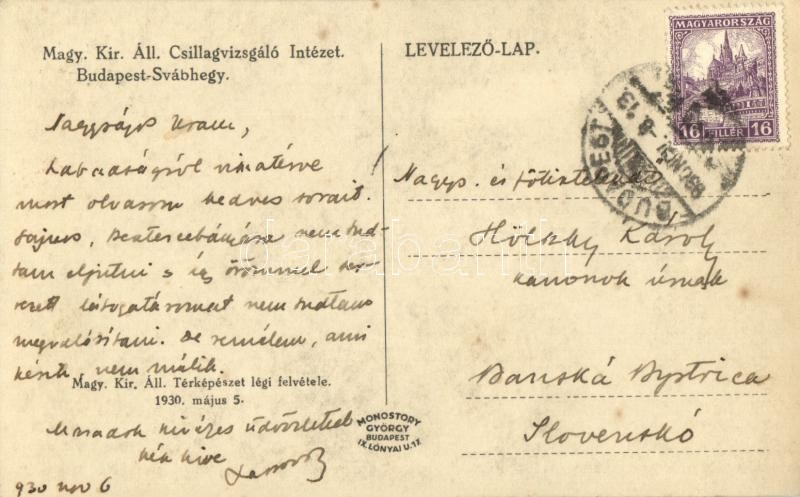 Magy. Kir. Áll. Csillagvizsgáló Intézet.
Budapest-Svábhegy.
Nagyságos Uram,
Szabadságról visszatérve
most olvasom kedves sorait.
Sajnos, nem tud-
tam eljutni s így örömmel ter-
vezett látogatásomat nem tudtam
megvalósítani. De remélem, ami
késik, nem múlik.
Magy. Kir. Áll. Térképészet légi felvétele.
1930. május 5.
Maradok kiváló üdvözlettel
kész híve
930 nov 6
MONOSTORY
GYÖRGY
BUDAPEST
IX. LÓNYAI U. 17.
LEVELEZŐ-LAP.
MAGYARORSZÁG
16 FILLÉR 16
BUDAPEST
Nagys. és főtisztelendő
Hölzky Károly
kanonok úrnak
Banská Bystrica
Slovenskó
darabanth